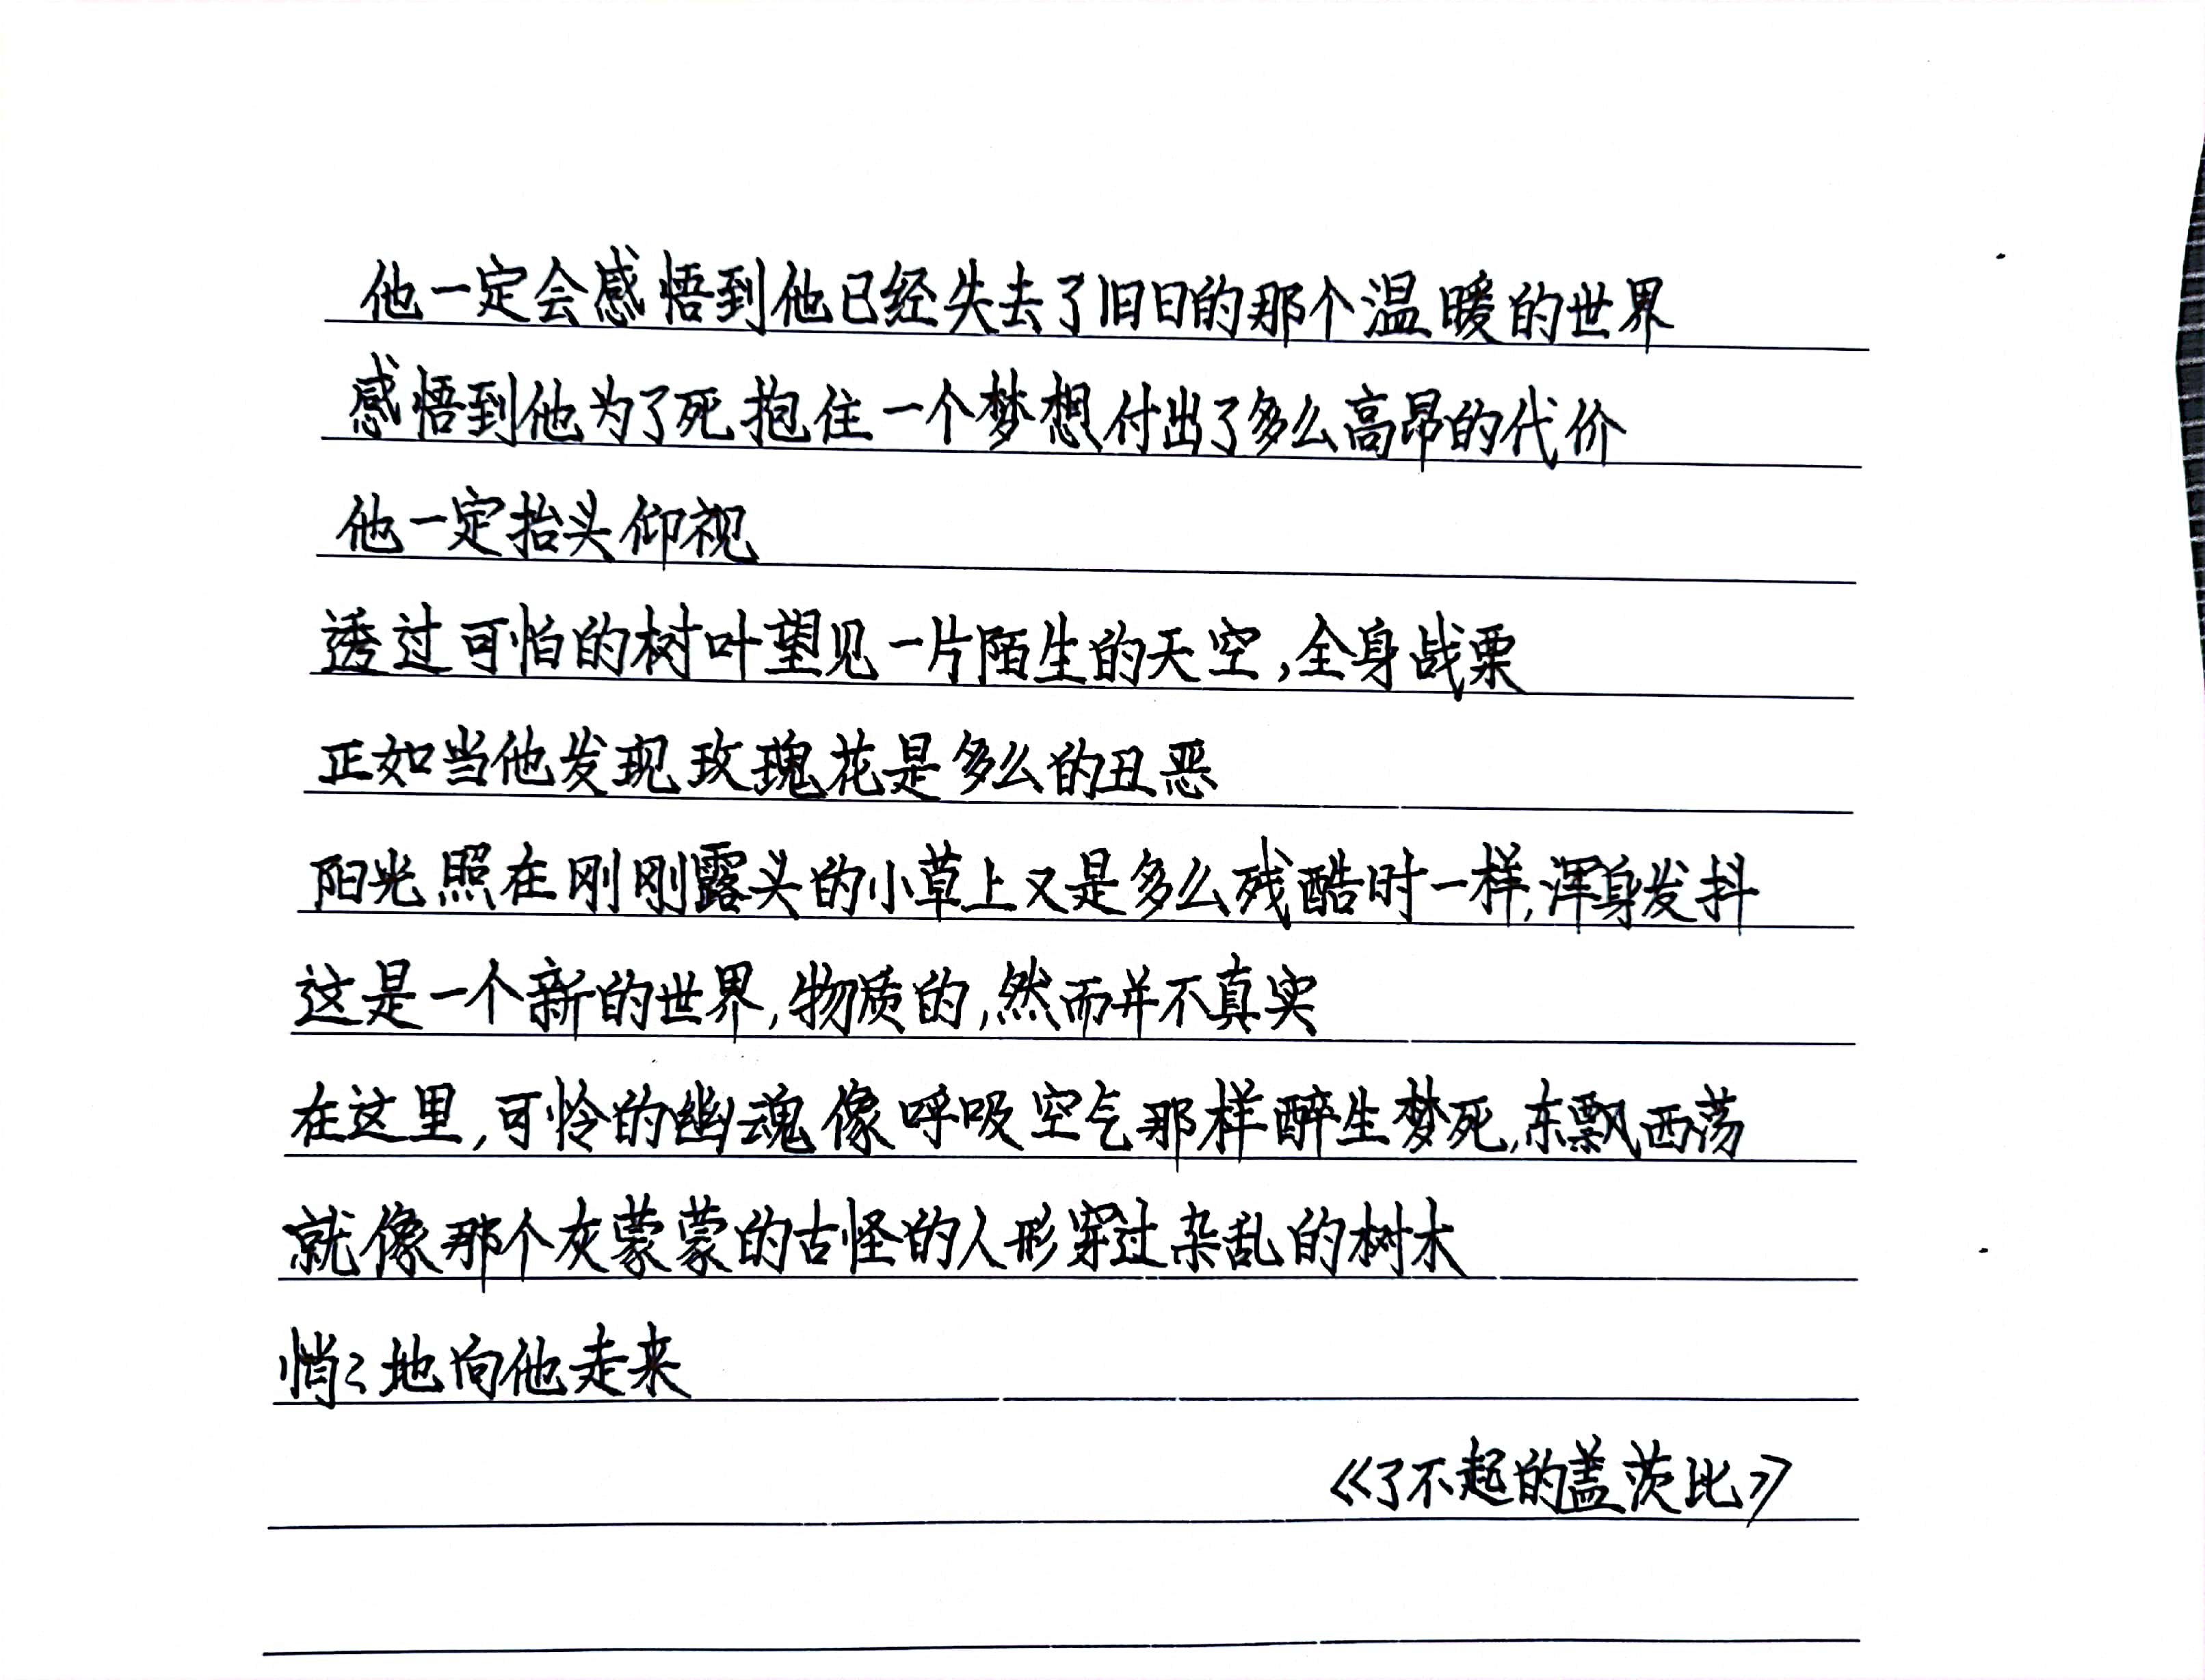 他一定会感悟到他已经失去了旧日的那个温暖的世界
感悟到他为了死抱住一个梦想付出了多么高昂的代价
他一定抬头仰视
透过可怕的树叶望见一片陌生的天空,全身战栗
正如当他发现玫瑰花是多么的丑恶
阳光照在刚刚露头的小草上又是多么残酷时一样,浑身发抖
这是一个新的世界,物质的,然而并不真实
在这里,可怜的幽魂像呼吸空气那样醉生梦死,东飘西荡
就像那个灰蒙蒙的古怪的人形穿过杂乱的树木
悄々地向他走来
《了不起的盖茨比》